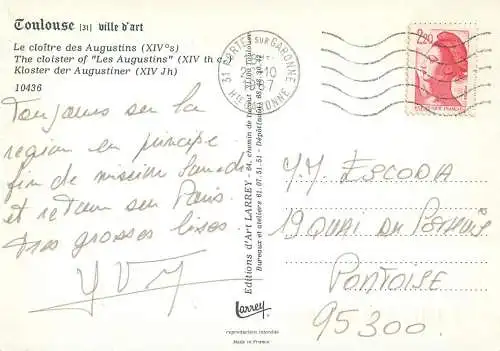 Toulouse [31] ville d'art
Le cloître des Augustins (XIV°s)
The cloister of "Les Augustins" (XIV th c.)
Kloster der Augustiner (XIV Jh)
10436
Toujours sur la
region en principe
fin de mission Samedi
et retour sur Paris
Tres grosses bises.
YVY
Editions d'Art LARREY - 84, chemin de
Bureaux et ateliers 61.07.51.51 - Dépôt
Larrey
reproduction interdite
Made in France
31 PORTET SUR GARONNE
10
HTE GARONNE
2,20
Y.Y ESCODIA
19 QUAI DU
PONTOISE
95300.